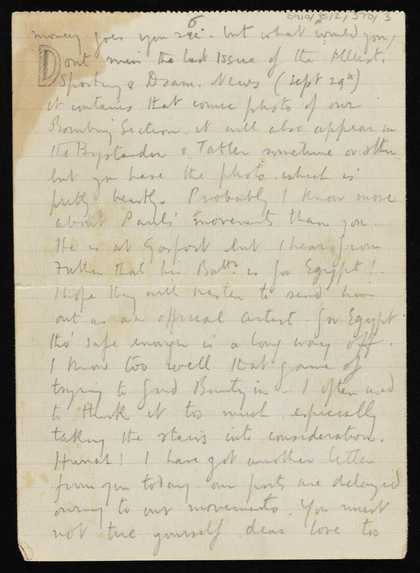 6
money goes you see. but what would you,
Dont miss the last Issue of the Illust.
Sporting & Dram. News (Sept 29th)
it contains that comic photo of our
Bombing Section it will also appear in
the Bystander & Tatler sometime or other
but you have the photo which is
pretty beastly. Probably I know more
about Pauls' movements than you.
He is at Gosport but I hear from
that his Battn. is for Egypt!
I hope they will to send him
out as an official artist for Egypt
tho' safe enough is a long way off.
I know too well that game of
trying to find Beauty in - I often used
to think it too much especially
taking the stairs into consideration.
Hurrah! I have got another letter
from you today our posts are delayed
owing to our movements. You must
not tire yourself dear love too